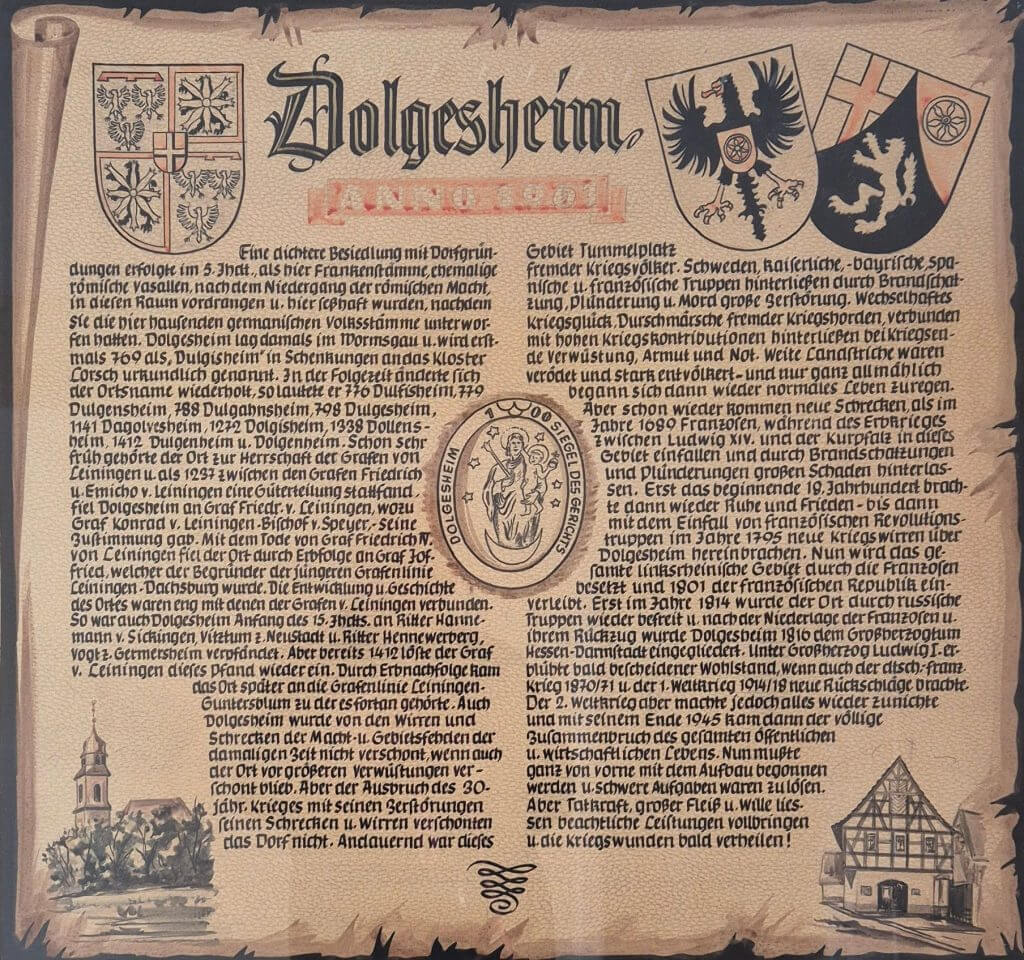 Dolgesheim
ANNO 1901
Eine dichtere Besiedlung mit Dorfgrün-
dungen erfolgte im 5. Jhdt., als hier Frankenstämme, ehemalige
römische Vasallen, nach dem Niedergang der römischen Macht,
in diesen Raum vordrangen u. hier seßhaft wurden, nachdem
sie die hier hausenden germanischen Volksstämme unterwor-
fen hatten. Dolgesheim lag damals im Wormsgau u. wird erst-
mals 769 als „Dulgisheim" in Schenkungen an das Kloster
Lorsch urkundlich genannt. In der Folgezeit änderte sich
der Ortsname wiederholt, so lautete er 776 Dulfisheim, 779
Dulgensheim, 788 Dulgahnsheim, 798 Dulgesheim,
1141 Dagolvesheim, 1272 Dolgisheim, 1338 Dollens-
heim, 1412 Dulgenheim u. Dolgenheim. Schon sehr
früh gehörte der Ort zur Herrschaft der Grafen von
Leiningen u. als 1237 zwischen den Grafen Friedrich
u. Emicho v. Leiningen eine Güterteilung stattfand,
fiel Dolgesheim an Graf Friedr. v. Leiningen, wozu
Graf Konrad v. Leiningen-Bischof v. Speyer,- seine
Zustimmung gab. Mit dem Tode von Graf Friedrich IV.
von Leiningen fiel der Ort durch Erbfolge an Graf Jof-
fried, welcher der Begründer der jüngeren Grafenlinie
Leiningen-Dachsburg wurde. Die Entwicklung u. Geschichte
des Ortes waren eng mit denen der Grafen v. Leiningen verbunden.
So war auch Dolgesheim Anfang des 15. Jhdts. an Ritter Hanne-
mann v. Sickingen, Vitztum z. Neustadt u. Ritter Hennewerberg,
Vogt z. Germersheim verpfändet. Aber bereits 1412 löste der Graf
v. Leiningen dieses Pfand wieder ein. Durch Erbnachfolge kam
das Ort später an die Grafenlinie Leiningen-
Guntersblum zu der es fortan gehörte. Auch
Dolgesheim wurde von den Wirren und
Schrecken der Macht- u. Gebietsfehden der
damaligen Zeit nicht verschont, wenn auch
der Ort vor größeren Verwüstungen ver-
schont blieb. Aber der Ausbruch des 30-
jähr. Krieges mit seinen Zerstörungen
seinen Schrecken u. Wirren verschonten
das Dorf nicht. Andauernd war dieses
Gebiet Tummelplatz
fremder Kriegsvölker. Schweden, Kaiserliche,-bayrische, spa-
nische u. französische Truppen hinterließen durch Brandschat-
zung, Plünderung u. Mord große Zerstörung. Wechselhaftes
Kriegsglück, Durschmärsche fremder Kriegshorden, verbunden
mit hohen Kriegskontributionen hinterließen bei Kriegsen-
de Verwüstung, Armut und Not. Weite Landstriche waren
verödet und stark entvölkert - und nur ganz allmählich
begann sich dann wieder normales Leben zu regen.
Aber schon wieder kommen neue Schrecken, als im
Jahre 1689 Franzosen, während des Erbkrieges
zwischen Ludwig XIV. und der Kurpfalz in dieses
Gebiet einfallen und durch Brandschatzungen
und Plünderungen großen Schaden hinterlas-
sen. Erst das beginnende 18. Jahrhundert brach-
te dann wieder Ruhe und Frieden - bis dann
mit dem Einfall von französischen Revolutions-
truppen im Jahre 1795 neue Kriegswirren über
Dolgesheim hereinbrachen. Nun wird das ge-
samte linksrheinische Gebiet durch die Franzosen
besetzt und 1801 der französischen Republik ein-
verleibt. Erst im Jahre 1814 wurde der Ort durch russische
Truppen wieder befreit u. nach der Niederlage der Franzosen u.
ihrem Rückzug wurde Dolgesheim 1816 dem Großherzogtum
Hessen-Darmstadt eingegliedert. Unter Großherzog Ludwig I. er-
blühte bald bescheidener Wohlstand, wenn auch der dtsch.-franz.
Krieg 1870/71 u. der 1. Weltkrieg 1914/18 neue Rückschläge brachte.
Der 2. Weltkrieg aber machte jedoch alles wieder zunichte
und mit seinem Ende 1945 kam dann der völlige
Zusammenbruch des gesamten öffentlichen
u. wirtschaftlichen Lebens. Nun mußte
ganz von vorne mit dem Aufbau begonnen
werden u. schwere Aufgaben waren zu lösen.
Aber Tatkraft, großer Fleiß u. Wille lies-
sen beachtliche Leistungen vollbringen
u. die Kriegswunden bald verheilen!
DOLGESHEIM 1700 SIEGEL DES GERICHTS